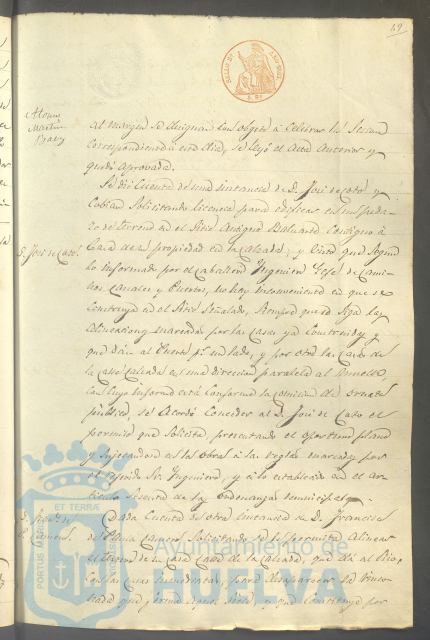 49
SELLO 4º AÑO 1861
Alonso
Martin
Baez
al margen se designan con objeto de celebrar la Sesion
correspondiente a este dia, se leyó el acta anterior y
quedó aprobada.
Se dió cuenta de una instancia de D. José de Coto y
Cobian solicitando licencia para edificar en un peda-
zo de terreno en el Sitio antiguo Baluarte contiguo a
Casa de su propiedad en la Calzada; y visto que segun
D. José de Coto.
lo informado por el Caballero Ingeniero Gefe de Cami-
nos Canales y Puertos, no hay inconveniente en que se
construya en el Sitio señalado, siempre que se siga las
alineaciones marcadas por las Casas ya construidas y
que dan al Puerto pr. un lado, y por otro las Casas de
la Calle Calzada en una direccion paralela al Muelle,
con cuyo informe está conforme la comision de ornato
público, se acordó conceder al D. José de Coto el
permiso que solicita, presentando el oportuno plano
y sujetandose en las obras á las reglas marcadas por
el referido Sr. Ingeniero, y á lo establecido en el ar-
ticulo sesenta de las ordenanzas municipales.
Dada cuenta de otra instancia de D. Francisco
de Paula solicitando se le permita alinear
el terreno de la Casa Calle de la Calzada, que dá al
con las Casas inmediatas, para desaparecer el rincon
que forma aquel Sitio, y que construya por
PORTUS MARIS ET TERRÆ CUSTODIA
Ayuntamiento de
HUELVA